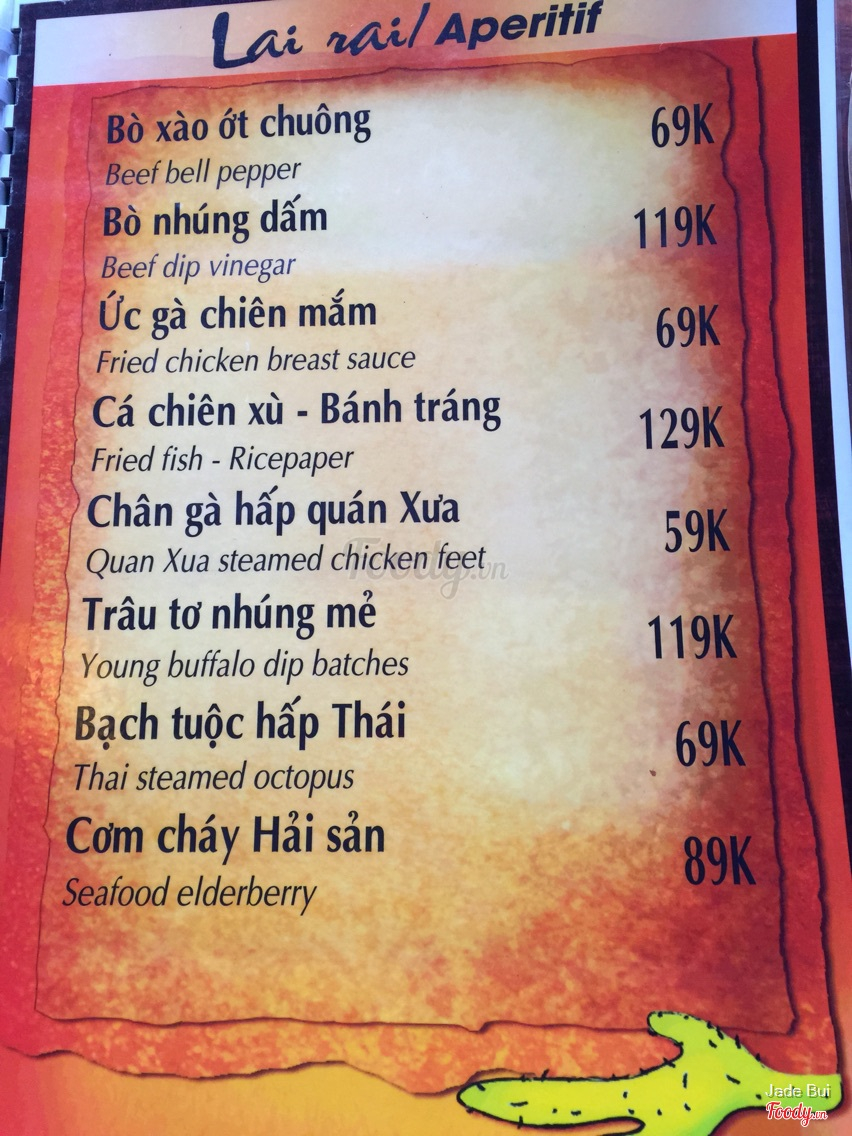 Lai rai/ Aperitif
Bò xào ớt chuông 69K
Beef bell pepper
Bò nhúng dấm 119K
Beef dip vinegar
Ức gà chiên mắm 69K
Fried chicken breast sauce
Cá chiên xù - Bánh tráng 129K
Fried fish - Ricepaper
Chân gà hấp quán Xưa 59K
Quan Xua steamed chicken feet
Foody.vn
Trâu tơ nhúng mẻ 119K
Young buffalo dip batches
Bạch tuộc hấp Thái 69K
Thai steamed octopus
Cơm cháy Hải sản 89K
Seafood elderberry
Jade Bui
Foody.vn